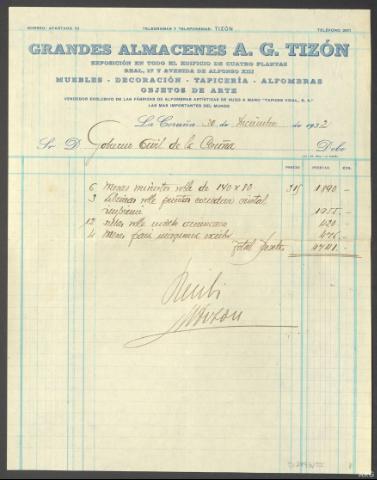 CORREO: APARTADO 10 TELEGRAMAS Y TELEFONEMAS: TIZÓN TELÉFONO 2611
GRANDES ALMACENES A. G. TIZÓN
EXPOSICIÓN EN TODO EL EDIFICIO DE CUATRO PLANTAS
REAL, 17 Y AVENIDA DE ALFONSO XIII
MUEBLES - DECORACIÓN - TAPICERÍA - ALFOMBRAS
OBJETOS DE ARTE
VENDEDOR EXCLUSIVO EN LAS FÁBRICAS DE ALFOMBRAS ARTÍSTICAS DE NUDO A MANO "TAPICES VIDAL, S. A."
LAS MÁS IMPORTANTES DEL MUNDO
La Coruña 30 de Diciembre de 1932
Sr. D. Gobierno Civil de la Coruña Debe
PRECIO PESETAS CTS.
6 Mesas ministro roble de 140 x 80 315 1890 -
3 roble puertas corredera cristal
1955 -
12 sillas roble americano 420 -
4 Mesas para maquinas escribir 476 -
Total Pesetas 4741 -
Recibi
Tizon